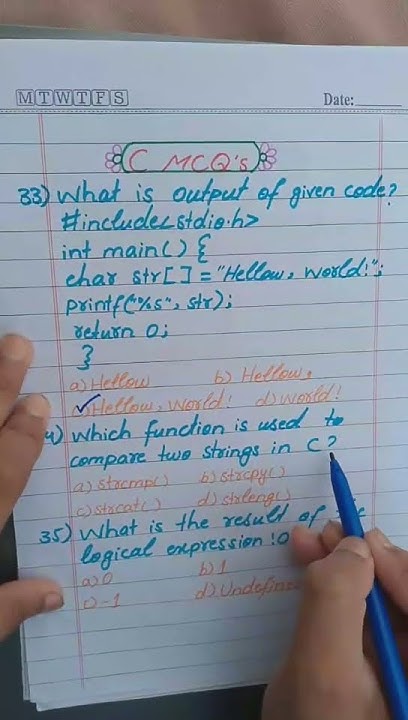 M T W T F S
Date:
C MCQ's
33) What is output of given code?
#include<stdio.h>
int main() {
char str[] = "Hellow, World!";
printf("%s", str);
return 0;
}
a) Hellow b) Hellow,
Hellow, World! d) World!
4) Which function is used to
compare two strings in C?
a) strcmp() b) strcpy()
c) strcat() d) strleng()
35) What is the result of
logical expression !0
a) 0 b) 1
c) -1 d) Undefine